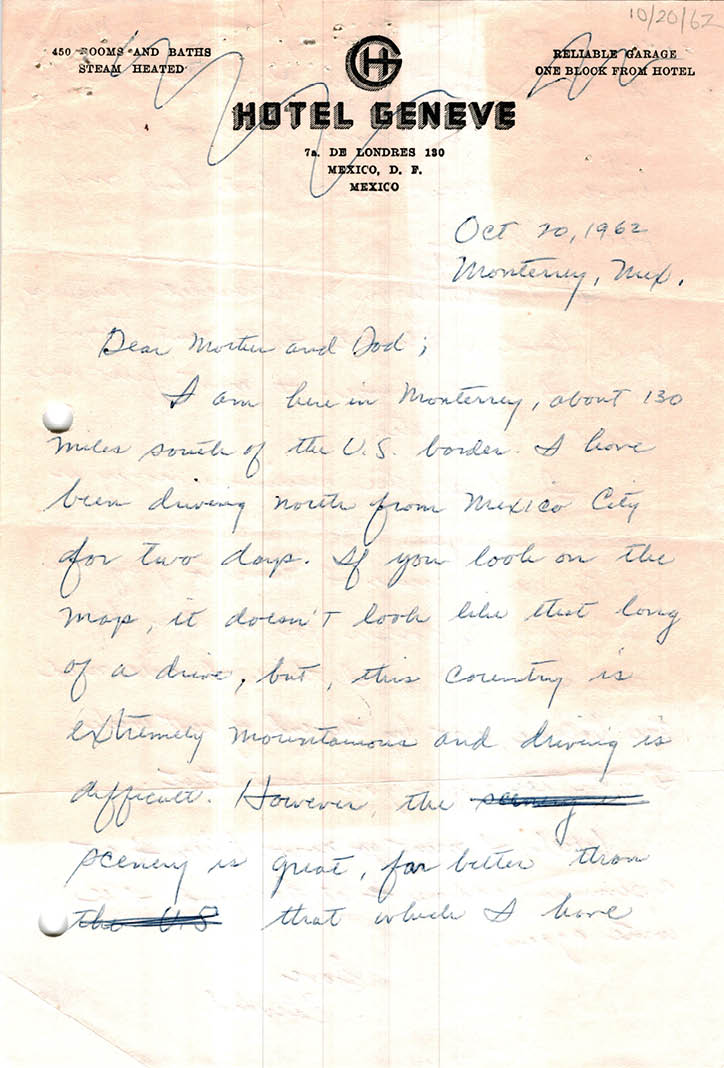 10/20/62
450 ROOMS AND BATHS
STEAM HEATED
GH
RELIABLE GARAGE
ONE BLOCK FROM HOTEL
HOTEL GENEVE
7a. DE LONDRES 130
MEXICO, D. F.
MEXICO
Oct 20, 1962
Monterrey, Mex.
Dear Mother and Dad;
I am here in Monterrey, about 130
miles south of the U.S. border. I have
been driving north from Mexico City
for two days. If you look on the
map, it doesn't look like that long
of a drive, but, this country is
extremely mountainous and driving is
difficult. However, the scenery is
scenery is great, far better than
the U.S that which I have